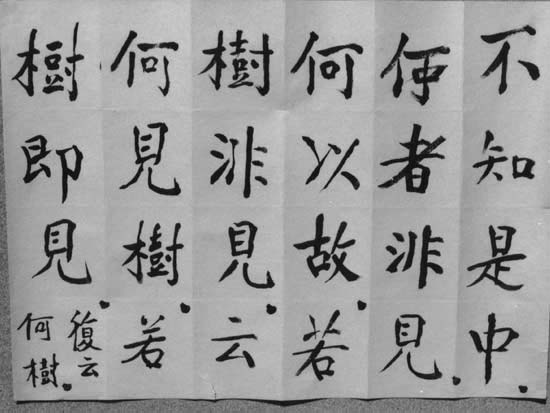 不知是中。
何者非見。
何以故。若
樹非見。云
何見樹。若
樹即見。
復云
何樹。